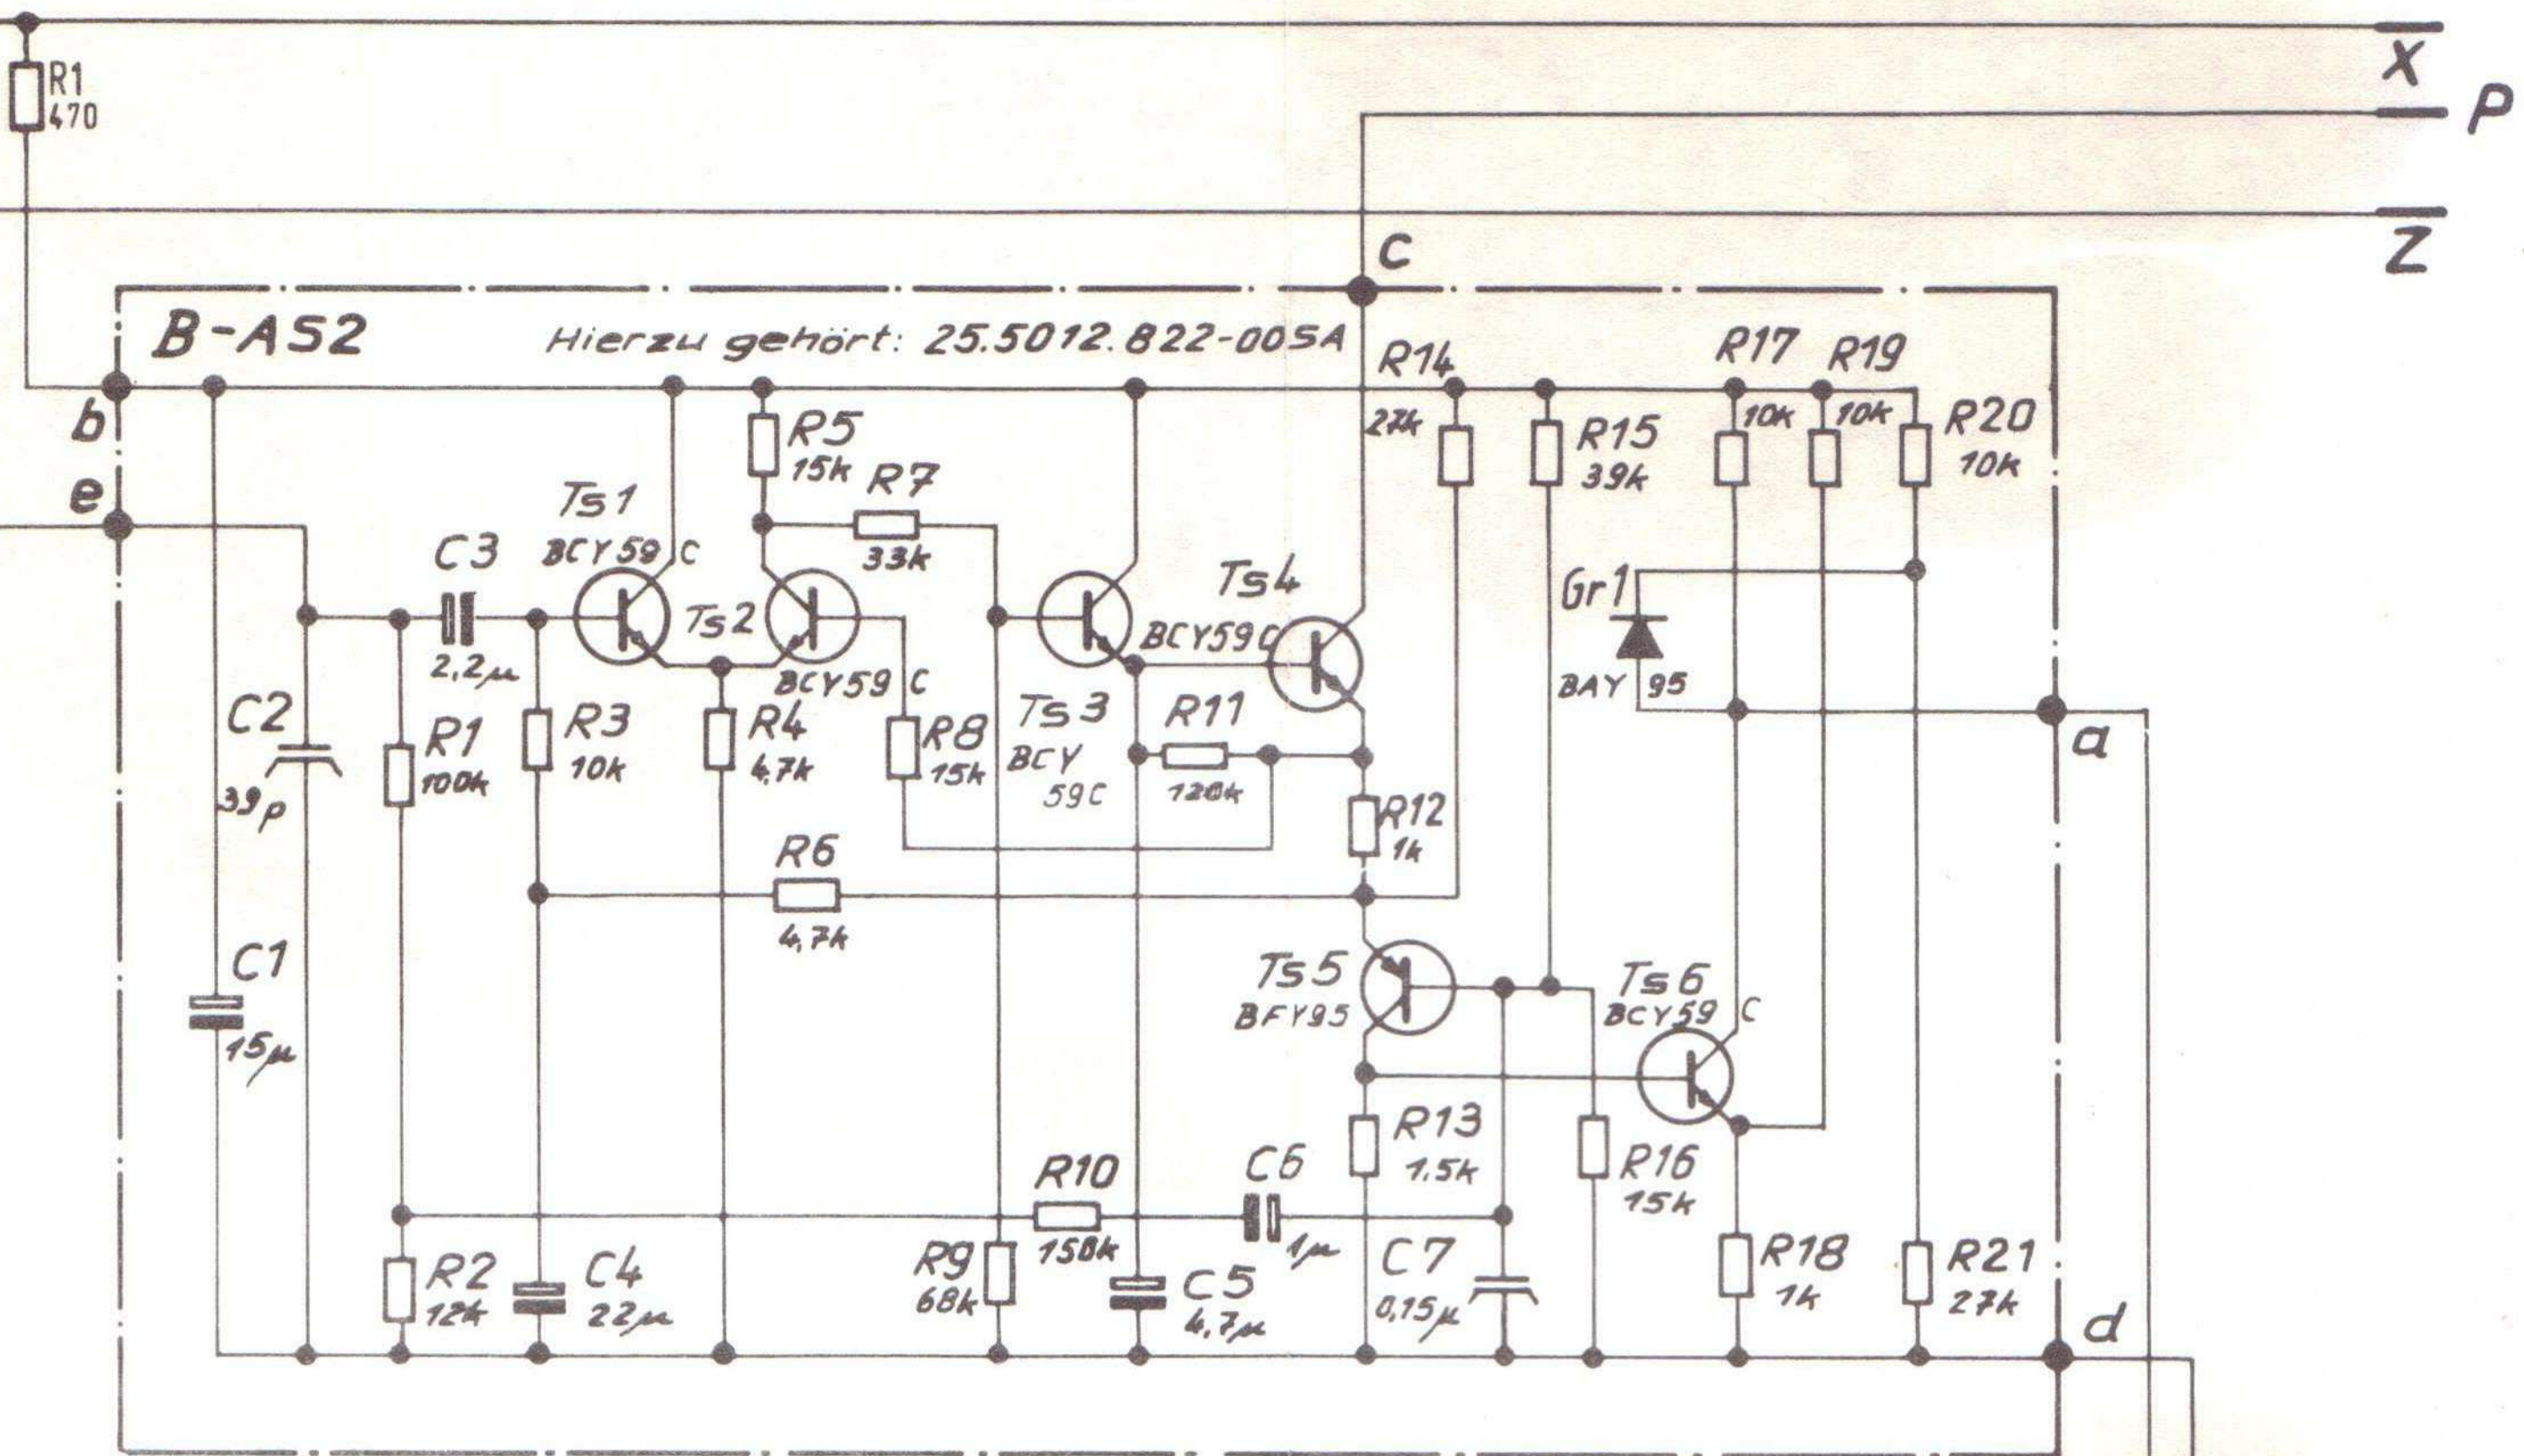 R1
470
X
P
Z
c
B-AS2
Hierzu gehört: 25.5012.822-00SA
b
e
R14
27k
R17
10k
R19
10k
R15
39k
R20
10k
R5
15k
R7
33k
Ts1
BCY59 C
C3
2,2µ
Ts2
BCY59 C
Ts4
BCY59C
Gr1
BAY 95
C2
39p
R1
100k
R3
10k
R4
4,7k
R8
15k
Ts3
BCY
59C
R11
120k
a
R12
1k
R6
4,7k
C1
15µ
Ts5
BFY95
Ts6
BCY59 C
R13
1,5k
R16
15k
R10
150k
C6
1µ
R2
12k
C4
22µ
R9
68k
C5
4,7µ
C7
0,15µ
R18
1k
R21
27k
d